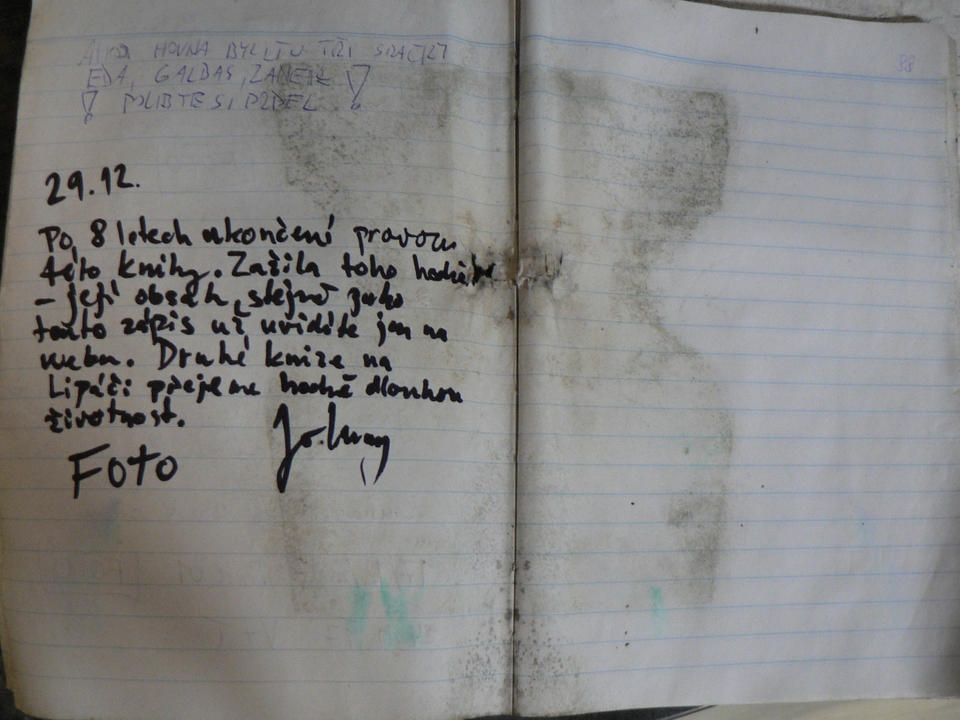 AHOJ HOVNA BYLI TU TŘI SRAČKY
EDA, GALBAS, ZANEK !
! POLIBTE SI PRDEL
88
29.12.
Po 8 letech ukončení provozu
této knihy. Zažila toho hodně
– její obsah, stejně jako
tento zápis už uvidíte jen na
webu. Druhé knize na
Lipáči přejeme hodně dlouhou
životnost.
Foto